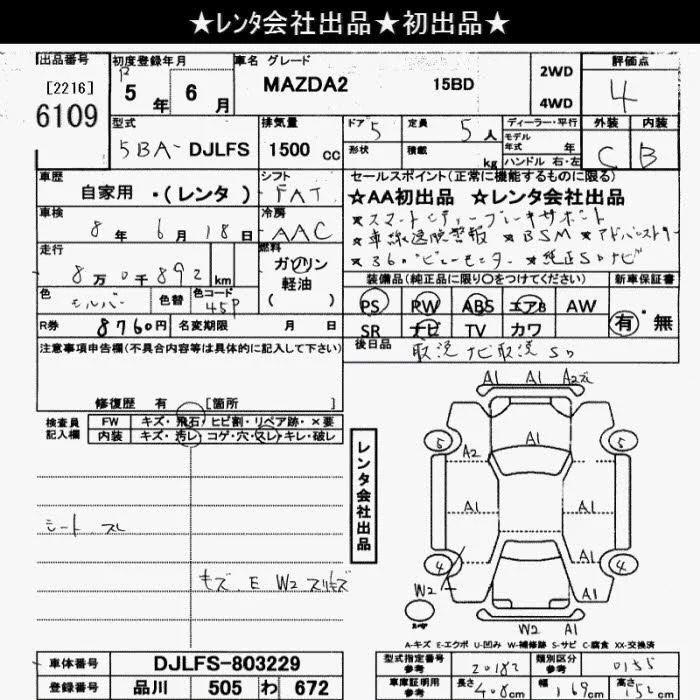 ★レンタ会社出品★初出品★
出品番号 初度登録年月 車名 グレード 評価点
[2216] 5年 6月 MAZDA2 15BD 2WD 4
6109 4WD
型式 排気量 ドア 定員 ディーラー・平行 外装 内装
5BA- DJLFS 1500 cc 5 5人 モデル年式 年 C B
形状 積載 kg ハンドル 右・左
車歴 シフト セールスポイント(正常に機能するものに限る)
自家用 ・(レンタ) FAT ★AA初出品 ★レンタ会社出品
車検 冷房 ★スマートシティーブレーキサポート
8年 6月 18日 AAC ★車線逸脱警報 ★BSM ★アドバンストキー
走行 燃料 ★360°ビューモニター ★純正SDナビ
8万0千892km ガソリン 装備品(純正品に限り○をつけてください) 新車保証書
軽油
色 色替 色コード ( ) PS PW ABS エアB AW 有・無
シルバー 45P
R券 8760円 名変期限 月 日 SR ナビ TV カワ
注意事項申告欄(不具合内容等は具体的に記入して下さい) 後日品 取説 ナビ取説 SD
修復歴 有 [箇所
検査員記入欄 FW キズ・飛石・ヒビ割・リペア跡・×要
内装 キズ・汚レ・コゲ・穴・スレ・キレ・破レ
シート スレ
キズ、E W2 スリキズ
レンタ会社出品
A1 A1 A2
A1
5 5
A2 A1
A1 A1
A1
4 4
W2 A1
W2 A1
A-キズ E-エクボ U-凹み W-補修跡 S-サビ C-腐食 XX-交換済
車体番号 DJLFS-803229 型式指定番号参考 20182 類別区分参考 0155
登録番号 品川 505 わ 672 車庫証明用参考 長さ 408cm 幅 169cm 高さ 152cm